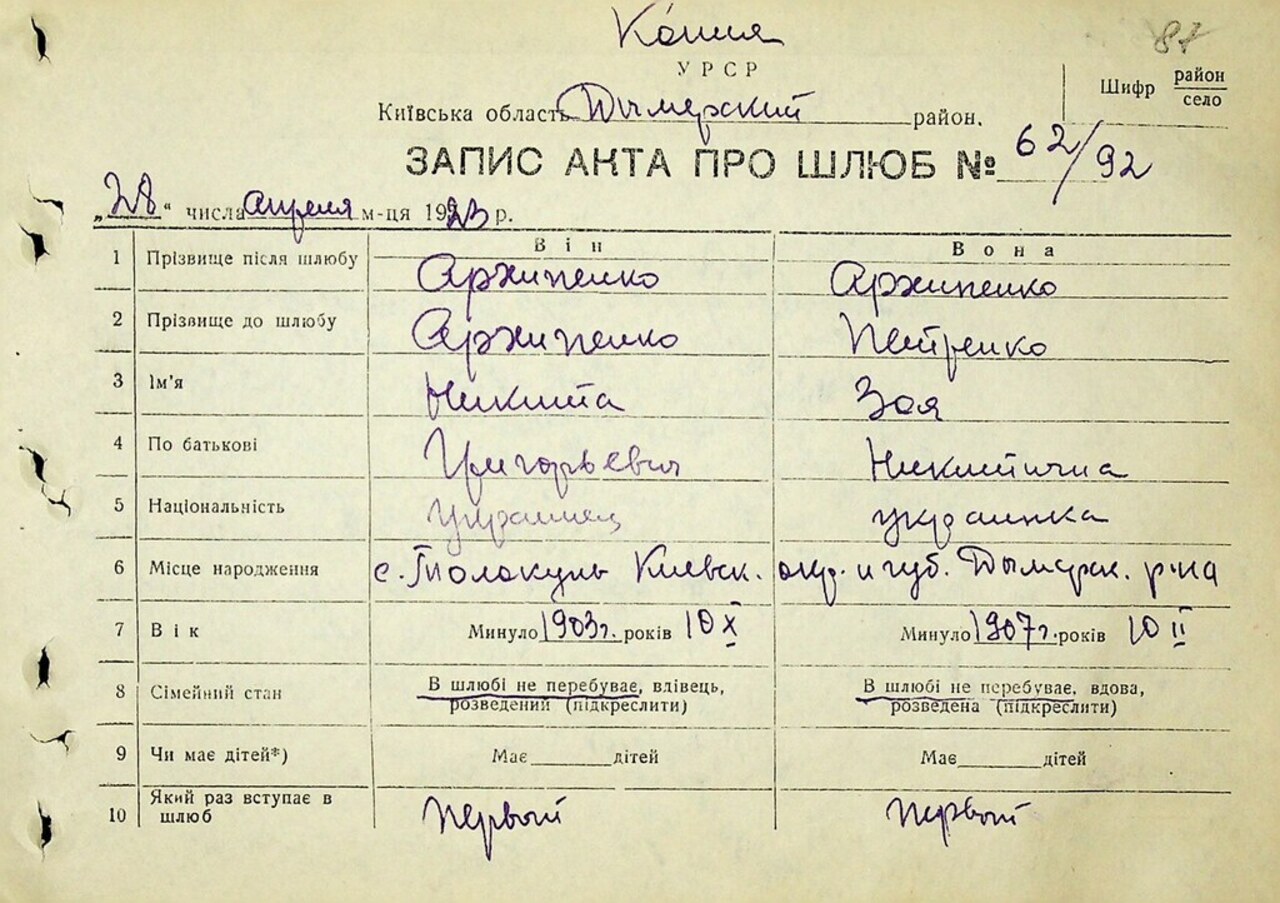 Копия
87
УРСР
Шифр район
село
Київська область Дымерский район.
ЗАПИС АКТА ПРО ШЛЮБ № 62/92
„28“ числа апреля м-ця 1923 р.
Він Вона
1 Прізвище після шлюбу Архипенко Архипенко
2 Прізвище до шлюбу Архипенко Петренко
3 Ім'я Никита Зоя
4 По батькові Григорьевич Никитична
5 Національність украинец украинка
6 Місце народження с. Толокунь Киевск. окр. и губ. Дымерск. р-на
7 Вік Минуло 1903г. років 10 X Минуло 1907г. років 10 II
8 Сімейний стан В шлюбі не перебуває, вдівець, В шлюбі не перебуває, вдова,
розведений (підкреслити) розведена (підкреслити)
9 Чи має дітей*) Має______дітей Має______дітей
10 Який раз вступає в
шлюб первый первый